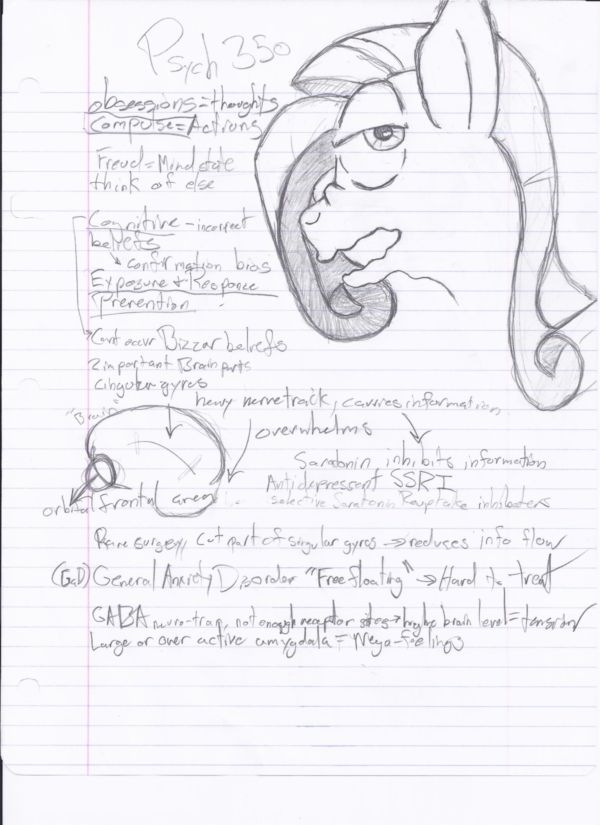 Psych 350
obsessions = thoughts
Compulse = Actions
Freud = Mind state
think of else
Cognitive - incorrect
beliefs
confirmation bias
Exposure + Response
Prevention
Cant occur Bizzar beliefs
2 important Brain parts
Cingular gyros
heavy nerve track, carries information
"Brain"
overwhelms
Saratonin inhibits information
Antidepressent SSRI
selective Saratonin Reuptake inhibiters
orbital frontal area
Rare surgery, Cut part of singular gyros → reduces info flow
(GaD) General Anxiety Disorder "Free floating" → Hard to treat
GABA neuro-tran, not enough receptor sites → brain level = tension
Large or over active amygdala = Nega-feelings